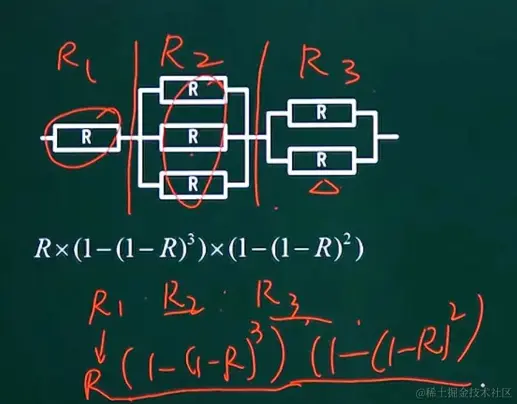 R₁ R₂ R₃
R
R R
R
R R
R×(1-(1-R)³)×(1-(1-R)²)
R₁ · R₂ · R₃
↓
R(1-(1-R)³)(1-(1-R)²)
@稀土掘金技术社区